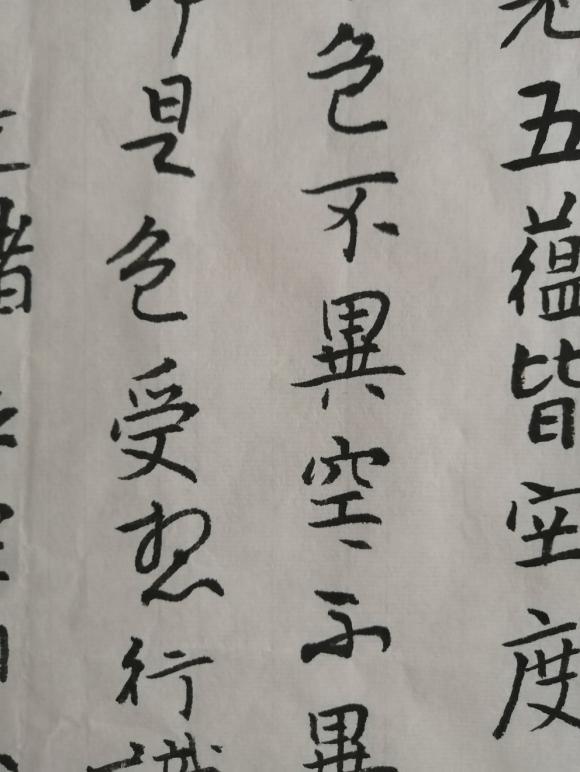 五蘊皆空度
色不異空〻不異
是色受想行識